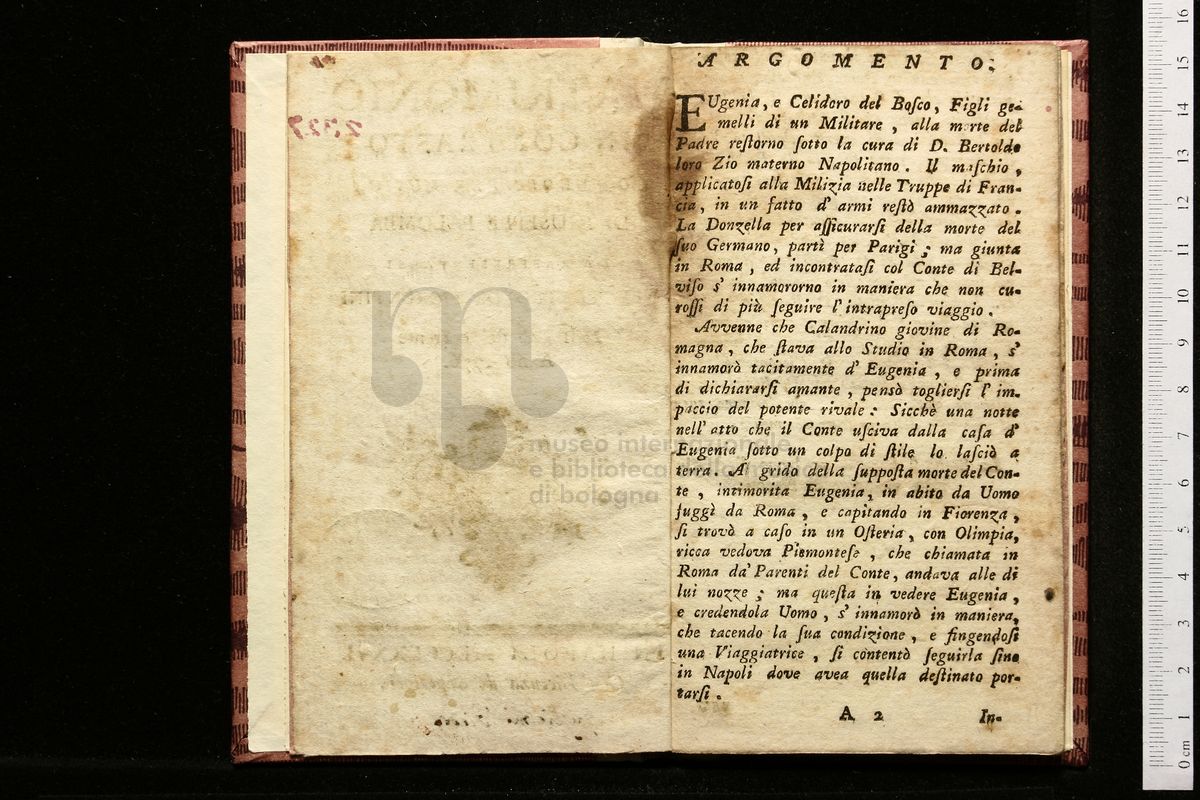 2327
museo internazionale
e biblioteca della musica
di bologna
ARGOMENTO.
EUgenia, e Celidoro del Boſco, Figli ge-
melli di un Militare, alla morte del
Padre reſtorno ſotto la cura di D. Bertoldo
loro Zio materno Napolitano. Il maſchio,
applicatoſi alla Milizia nelle Truppe di Fran-
cia, in un fatto d' armi reſtò ammazzato.
La Donzella per aſſicurarſi della morte del
ſuo Germano, partì per Parigi; ma giunta
in Roma, ed incontrataſi col Conte di Bel-
viſo s' innamororno in maniera che non cu-
roſſi di più ſeguire l' intrapreſo viaggio.
Avvenne che Calandrino giovine di Ro-
magna, che ſtava allo Studio in Roma, s'
innamorò tacitamente d' Eugenia, e prima
di dichiararſi amante, pensò toglierſi l' im-
paccio del potente rivale: Sicchè una notte
nell' atto che il Conte uſciva dalla caſa d'
Eugenia ſotto un colpo di ſtile lo laſciò a
terra. A grido della ſuppoſta morte del Con-
te, intimorita Eugenia, in abito da Uomo
fuggì da Roma, e capitando in Fiorenza,
ſi trovò a caſo in un Oſteria, con Olimpia,
ricca vedova Piemonteſe, che chiamata in
Roma da' Parenti del Conte, andava alle di
lui nozze; ma queſta in vedere Eugenia,
e credendola Uomo, s' innamorò in maniera,
che tacendo la ſua condizione, e fingendoſi
una Viaggiatrice, ſi contentò ſeguirla ſino
in Napoli dove avea quella deſtinato por-
tarſi.
A 2
In-